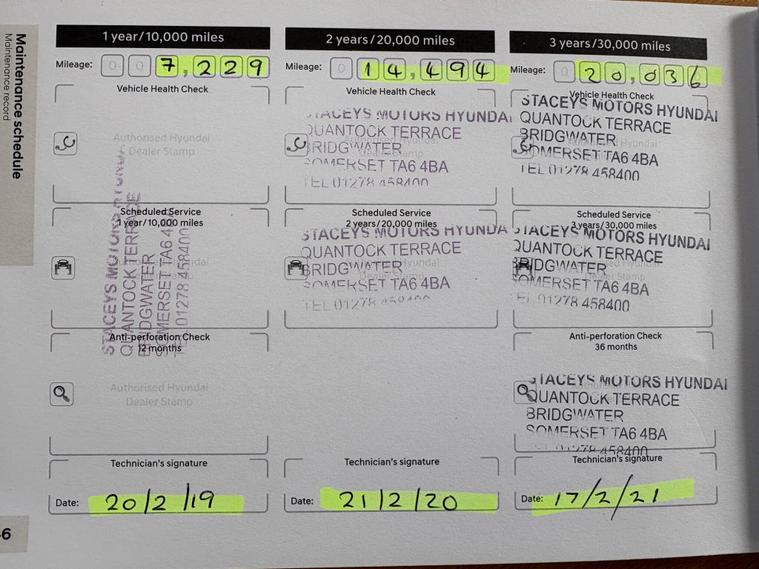 Maintenance schedule
Maintenance record
1 year/10,000 miles
Mileage: 0 0 7,229
Vehicle Health Check
Authorised Hyundai
Dealer Stamp
Scheduled Service
1 year/10,000 miles
STACEYS MOTORS HYUNDAI
QUANTOCK TERRACE
BRIDGWATER
SOMERSET TA6 4
TEL 01278 458400
Anti-perforation Check
12 months
Authorised Hyundai
Dealer Stamp
Technician's signature
Date: 20/2/19
2 years/20,000 miles
Mileage: 0 14,494
Vehicle Health Check
STACEYS MOTORS HYUNDAI
QUANTOCK TERRACE
BRIDGWATER
SOMERSET TA6 4BA
TEL 01278 458400
Scheduled Service
2 years/20,000 miles
STACEYS MOTORS HYUNDAI
QUANTOCK TERRACE
BRIDGWATER
SOMERSET TA6 4BA
TEL 01278 458400
Technician's signature
Date: 21/2/20
3 years/30,000 miles
Mileage: 0 20,036
Vehicle Health Check
STACEYS MOTORS HYUNDAI
QUANTOCK TERRACE
BRIDGWATER
SOMERSET TA6 4BA
TEL 01278 458400
Scheduled Service
3 years/30,000 miles
STACEYS MOTORS HYUNDAI
QUANTOCK TERRACE
BRIDGWATER
SOMERSET TA6 4BA
TEL 01278 458400
Anti-perforation Check
36 months
STACEYS MOTORS HYUNDAI
QUANTOCK TERRACE
BRIDGWATER
SOMERSET TA6 4BA
TEL 01278 458400
Technician's signature
Date: 17/2/21
6